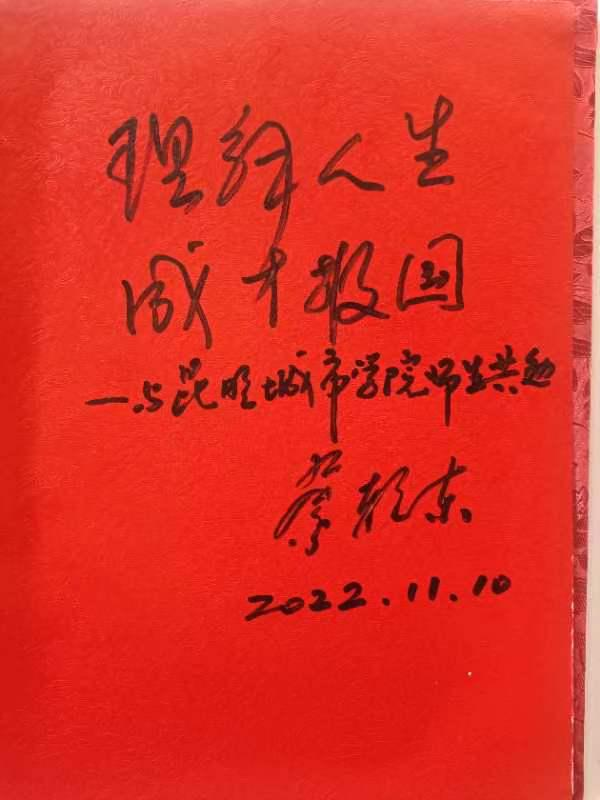 理解人生
成才报国
—与昆明城市学院师生共勉
蔡朝东
2022.11.10